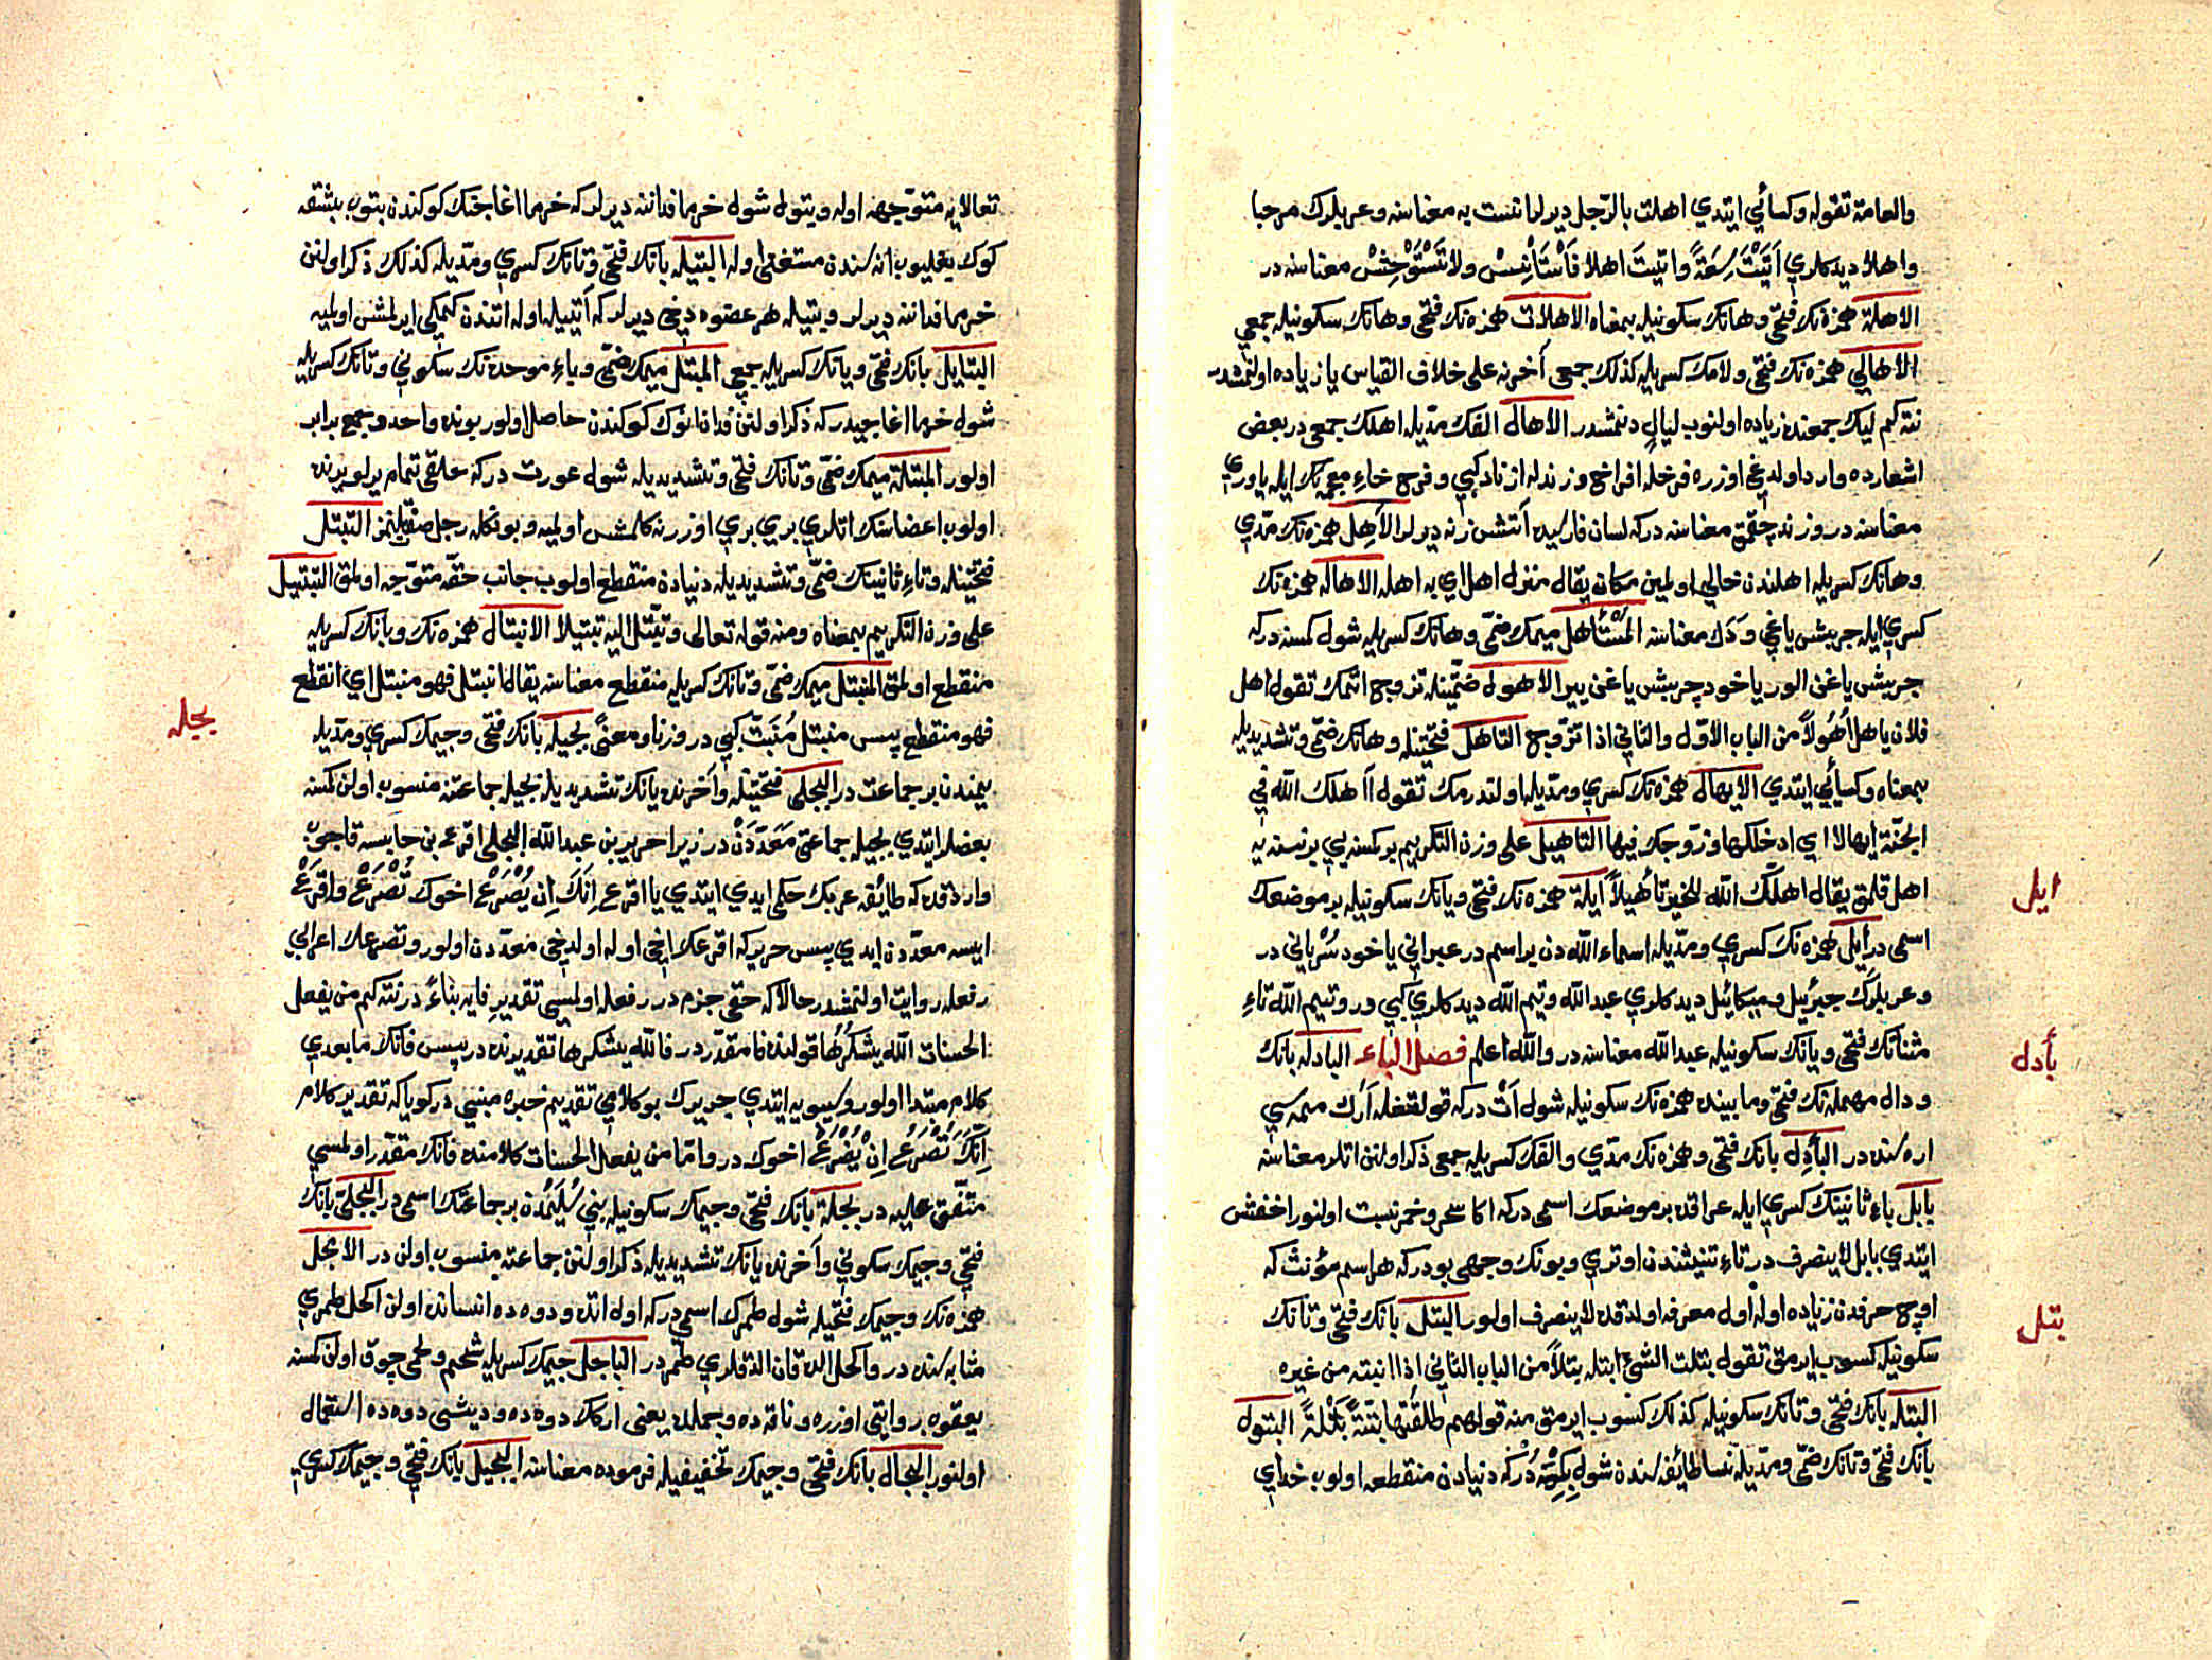 والعامة تقوله وكسائي ايتدي اهلت بالرّجل ديرلر انست به معناسنه وعربلرك مرحبا
واهلا ديدكلري اَتَيْتَ سَعَةً واتيتَ اهلا فَاْسْتَاْنِسْ ولا تَسْتَوْحِشْ معناسنه در
الاهلة همزه نك فتحي وهانك سكونيله بمعناه الاهلات همزه نك فتحي وهانك سكونيله جمعي
الاهالي همزه نك فتحي ولامك كسريله كذلك جمعي آخرنه على خلاف القياس يا زياده اولنمشدر
نته كم ليك جمعنده زياده اولنوب ليالٍ دنمشدر الاهال الفك مدّيله اهلك جمعي در بعض
اشعارده وارد اولدغي اوزره فرخله افراخ وزندله ازناد كبي وفرخ خاء معجمه نك ايله ياوري
معناسنه در وزند چقمق معناسنه در كه لسان فارسيده آتشن زنه ديرلر الآهل همزه نك مدّي
وهانك كسريله اهلندن خالي اولمين مكان يقال منزل اهل اي به اهله الاهاله همزه نك
كسري ايله چربيش ياغي وَدَك معناسنه المُسْتَأهل ميمك ضمّي وهانك كسريله شول كمسنه در كه
چربيش ياغن الور ياخود چربيش ياغن يير الاهول ضمّتينله تزوج اتمك تقول اهل
فلان ياهل اُهُولاً من الباب الاوّل والثاني اذا تزوّج التاهل فتحتينله وهانك ضمّي وتشديديله
بمعناه وكسائي ايتدي الايهال همزه نك كسري ومدّيله اولندرمك تقول آهلك الله في
الجنّة ايهالا اي ادخلكها وزوّجك فيها التاهيل على وزن التكريم بر كمسنه يي بر نسنه يه
اهل قلمق يقال اهلّك الله للخير تأهيلاً ايلة همزه نك فتحي ويانك سكونيله بر موضعك
اسمي در ايل همزه نك كسري ومدّيله اسماء الله دن بر اسم در عبراني ياخود سُرْياني در
وعربلرك جبرئيل وميكائيل ديدكلري عبد الله وتيم الله ديدكلري كبي در وتيم الله تاء
مثناتك فتحي ويانك سكونيله عبد الله معناسنه در والله اعلم فصل الباء البادله بانك
ودال مهمله نك فتحي ومابينده همزه نك سكونيله شول اَت در كه قولتغله اَرَك ممه سي
اره سنده در البآدل بانك فتحي وهمزه نك مدّي والفك كسريله جمعي ذكر اولنن اتلر معناسنه
بابل باء ثانينك كسري ايله عراقده بر موضعك اسمي در كه اكا سحر وخمر نسبت اولنور اخفش
ايتدي بابل لا ينصرف در تاء تنيثندن اوتري وبونك وجهي بودر كه هر اسم مؤنث كه
اوچ حرفدن زياده اوله اول معرفه اولدقده لا ينصرف اولور البتل بانك فتحي وتانك
سكونيله كسوب ايرمق تقول بتلت الشئ ابتله بتلاً من الباب الثاني اذا ابنته من غيره
البتله بانك فتحي وتانك سكونيله كذلك كسوب ايرمق منه قولهم طلقتها بتّةً بَتْلةً البتول
بانك فتحي وتانك ضمّي ومدّيله نسا طائفه سندن شول بِكِرْ در كه دنيادن منقطعه اولوب خداي
ايل
بأدل
بتل
تعالايه متوّجهه اوله وبتول شول خرما فداننه ديرلر كه خرما اغاجنك كوكندن بتوب بشقه
كوك بغليوب اناسندن مستغني اوله البتيله بانك فتحي وتانك كسري ومدّيله كذلك ذكر اولنن
خرما فداننه ديرلر وبتيله هر عضوه دخي ديرلر كه اَتيله اول اتندن كميكي ايرلمش اولميه
البتايل بانك فتحي ويانك كسريله جمعي المبتل ميمك ضمّي وباء موحده نك سكوني وتانك كسريله
شول خرما اغاجيدر كه ذكر اولنن فدانانوك كوكندن حاصل اولور بونده واحد وجمع برابر
اولور المبتلة ميمك ضمّي وتانك فتحي وتشديديله شول عورت در كه خلقي تمام يرلو يرنده
اولوب اعضاسنك اتلري بري بري اوزرنه كلمش اولميه وبونكله رجل صفتلنمز التبتل
فتحتينله وتاء ثانينك ضمّي وتشديديله دنيادن منقطع اولوب جانب حقّه متوّجه اولمق التبتيل
على وزن التكريم بمعناه ومنه قوله تعالى وتبّتل اليه تبتيلا الانبتال همزه نك وبانك كسريله
منقطع اولمق المنبتل ميمك ضمّي وتانك كسريله منقطع معناسنه يقال انبتل فهو منبتل اي انقطع
فهو منقطع پس منبتل مُنَبتّ كبي در وزنا ومعنًى بجيله بانك فتحي وجيمك كسري ومدّيله
يمندن بر جماعت در البجلي فتحتينله وآخرنده يانك تشديديله بجيله جماعتنه منسوب اولن كمسنه
بعضلر ايتدي بجيله جماعتي مَعَدّدَنْ در زيرا جرير بن عبد الله البجلي اقرع بن حابسه قاچوب
واردقده كه طائفه عربك حكمي ايدي ايتدي يا اقرع اِنَّكَ اِن يُصْرَعْ اخوك تُصْرَعْ واقرَعْ
ايسه معدّدن ايدي پس جرير كه اقرعك اخي اوله اولدخي معدّدن اولور وتصرعك اعرابي
رفعله روايت اولنمشدر حالاكه حقي جزم در رفعله اولمسي تقدير فايه بناءً در نته كم من يفعل
الحسنات الله يشكرُها قولنده فا مقدّر در فالله يشكرها تقديرنده در پس فانك مابعدي
كلام مبتدا اولور وسيبويه ايتدي جريرك بو كلامي تقديم خبره مبني در كوياكه تقدير كلام
اِنَّكَ تُصْرَعُ اِنْ يُصْرَعْ اخوك در واما من يفعل الحسنات كلامنده فانك مقدّر اولمسي
متّفق عليه در بجلة بانك فتحي وجيمك سكونيله بني سُلَيمْدن بر جماعتك اسمي در البجلي بانك
فتحي وجيمك سكوني وآخرنده يانك تشديديله ذكر اولنن جماعته منسوب اولن در الابجل
همزه نك وجيمك فتحيله شول طمرك اسمي در كه اول اتده ودوه ده انسانده اولن اكحل طمري
مثابه سنده در واكحل الدن قان الدقلري طمر در الباجل جيمك كسريله شحم ولحمي چوق اولن كمسنه
يعقوب روايتي اوزره وناقه ده وجملده يعني اركك دوه ده وديشي دوه ده استعمال
اولنور البجال بانك فتحي وجيمك تخفيفيله فرموده معناسنه البجيل بانك فتحي وجيمك كسري
بجله